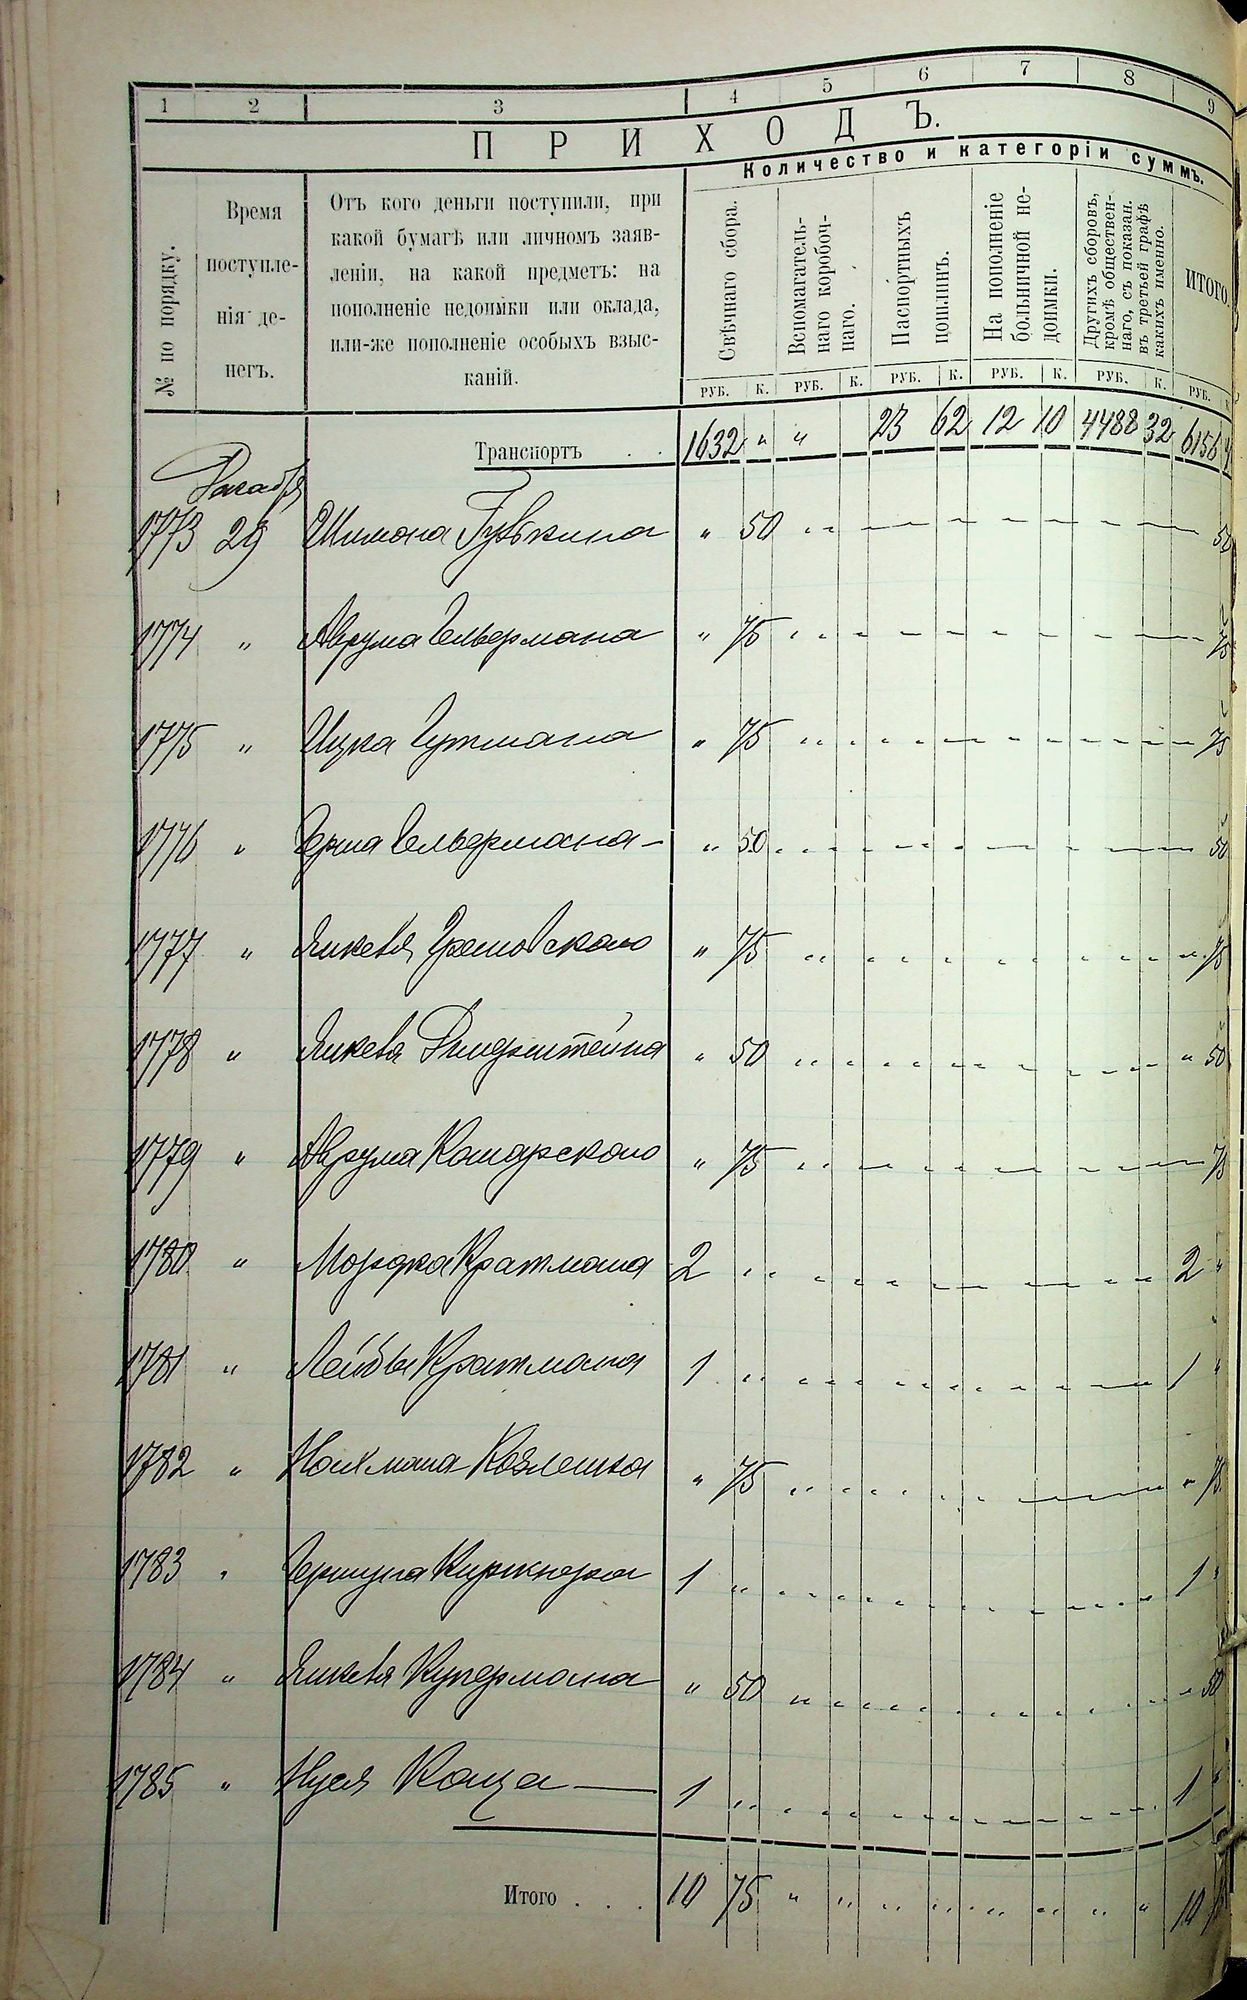 1 2 3 4 5 6 7 8 9
ПРИХОДЪ.
Количество и категоріи суммъ.
№ по порядку.
Время поступле-нія де-негъ.
Отъ кого деньги поступили, при
какой бумагѣ или личномъ заяв-
леніи, на какой предметъ: на
пополненіе недоимки или оклада,
или-же пополненіе особыхъ взыс-
каній.
Свѣчнаго сбора.
Вспомагатель-
наго коробоч-
наго.
Паспортныхъ
пошлинъ.
На пополненіе
больничной не-
доимки.
Другихъ сборовъ,
кромѣ обществен-
наго, съ показан.
въ третьей графѣ
какихъ именно.
ИТОГО.
РУБ. К. РУБ. К. РУБ. К. РУБ. К. РУБ. К. РУБ. К
Транспортъ . . 1632 „ „ 23 62 12 10 4488 32 6156
Декабря
1773 29 Шимона Гувкина „ 50 50
1774 „ Аврума Гельвермана „ 75 75
1775 „ Ицка Гутмана „ 75 75
1776 „ Герша Гельвермана „ 50 50
1777 „ Янкеля „ 75 75
1778 „ Янкеля „ 50 „ 50
1779 „ Аврума Комарского „ 75 75
1780 „ Мордка Кратмана 2 2 „
1781 „ Лейбы Кратмана 1 1 „
1782 „ Нахмана „ 75 „ 75
1783 „ Гершука Киржнера 1 1 „
1784 „ Янкеля Купермана „ 50 50
1785 „ Нуся Каца 1 1 „
Итого . . . 10 75 10 75